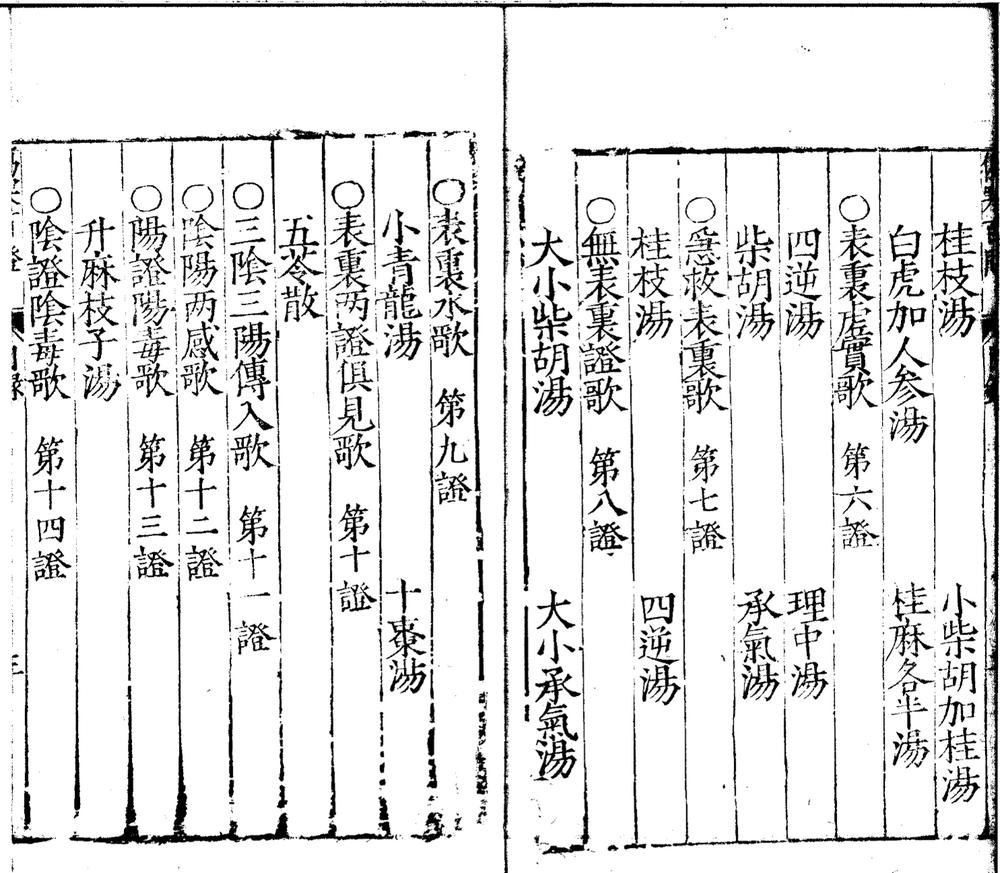 桂枝湯　小柴胡加桂湯
白虎加人參湯　桂麻各半湯
○表裏虛實歌　第六證
四逆湯　理中湯
柴胡湯　承氣湯
○急救表裏歌　第七證
桂枝湯　四逆湯
○無表裏證歌　第八證
大小柴胡湯　大小承氣湯
○表裏水歌　第九證
小青龍湯　十棗湯
○表裏两證俱見歌　第十證
五苓散
○三陰三陽傳入歌　第十一證
○陰陽两感歌　第十二證
○陽證陽毒歌　第十三證
升麻枝子湯
○陰證陰毒歌　第十四證